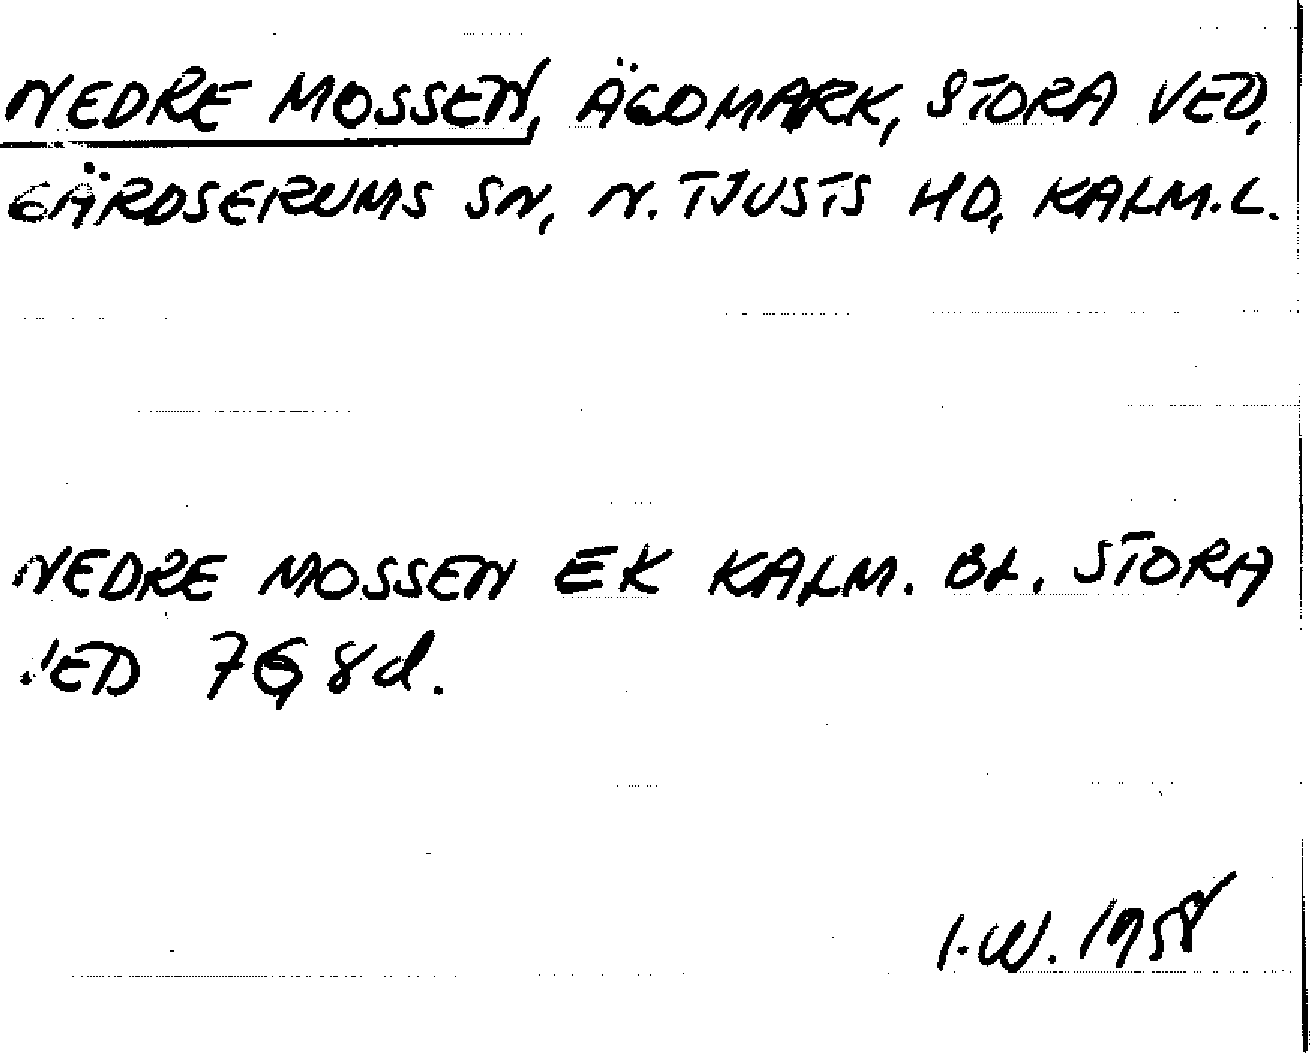 NEDRE MOSSEN, ÄGOMARK, STORA VED,
GÄRDSERUMS SN, N. TJUSTS HD, KALM.L.
NEDRE MOSSEN EK KALM. BL. STORA
VED 7G 8d.
I.W. 1958